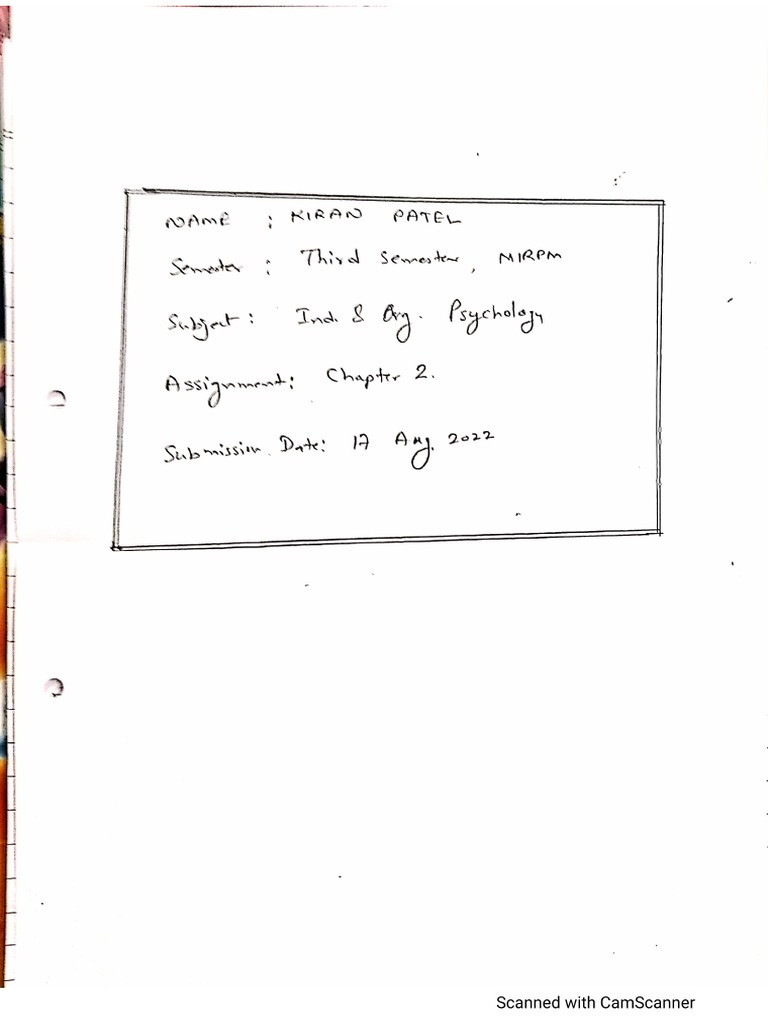 NAME : KIRAN PATEL
Semester : Third Semester, MIRPM
Subject : Ind. & Org. Psychology
Assignment : Chapter 2.
Submission Date : 17 Aug. 2022
Scanned with CamScanner